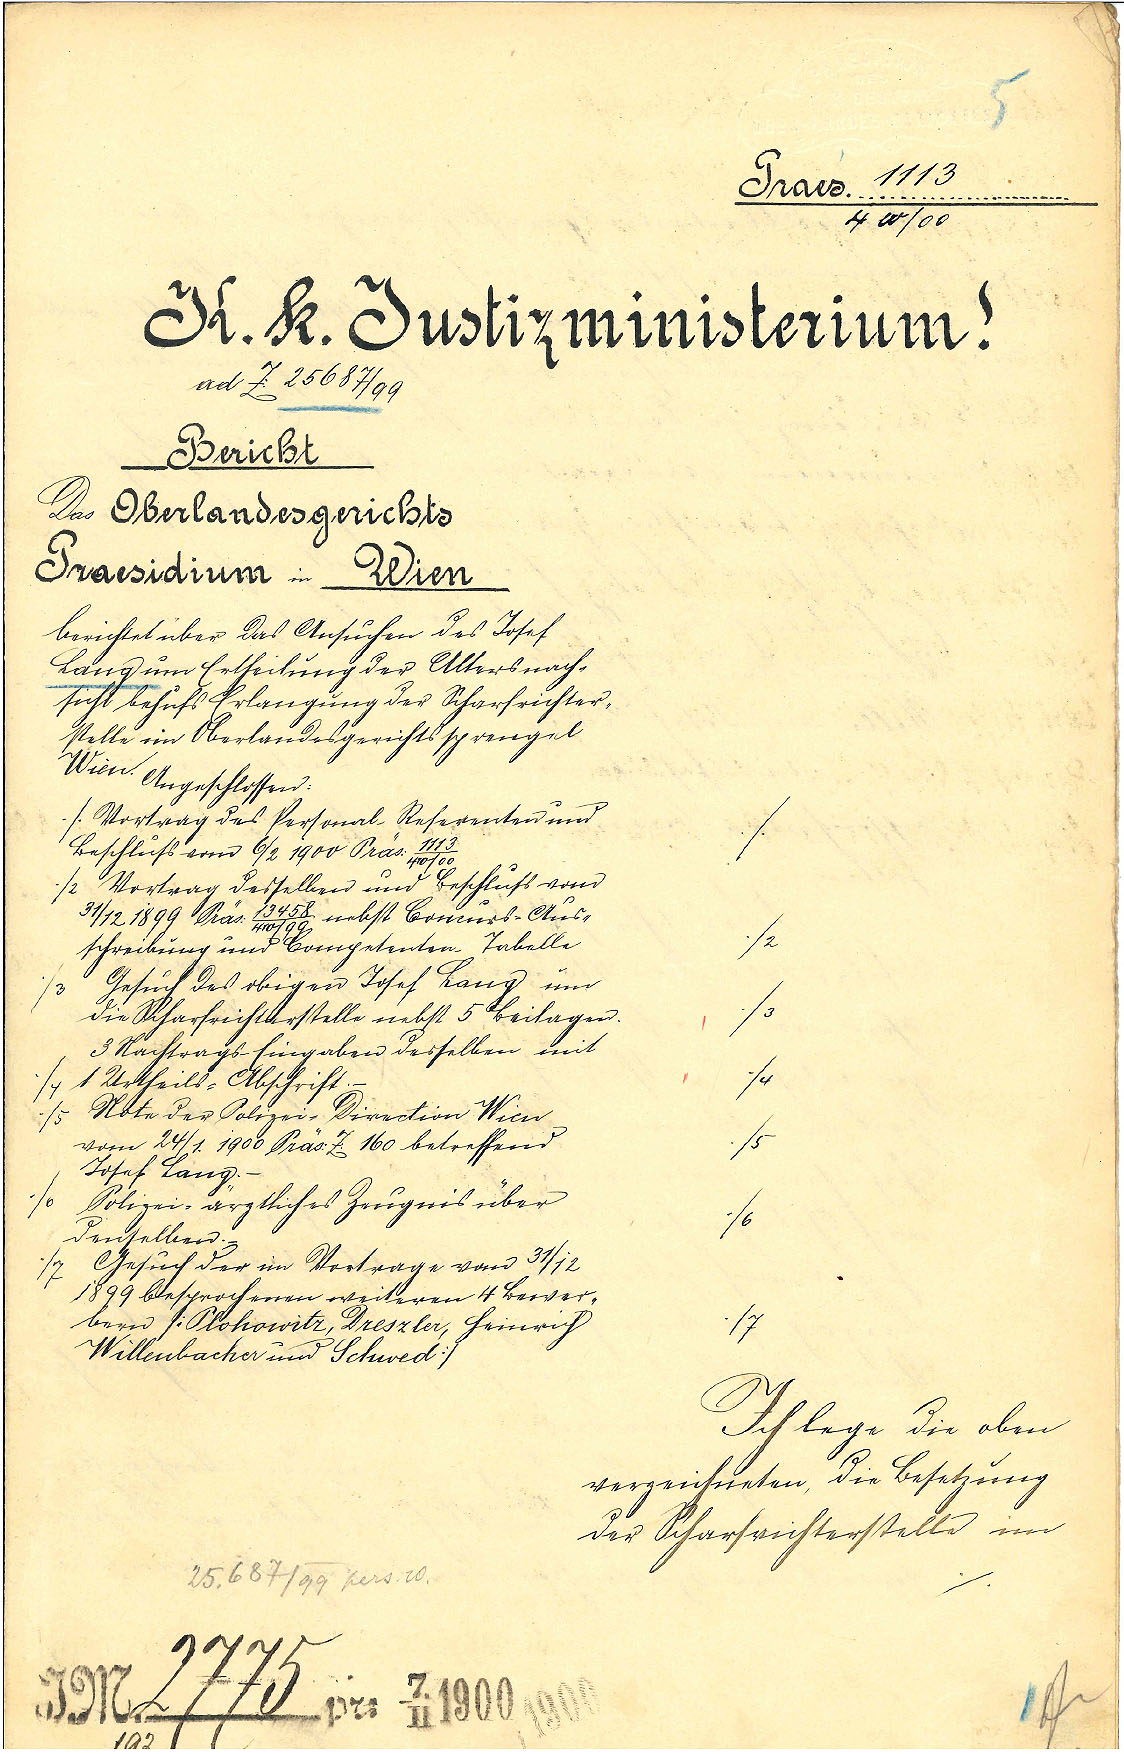 5
Praes. 1113
4 w/00
K. k. Justizministerium!
ad Z 25687/99
Bericht
Das Oberlandesgerichts
Praesidium in Wien
berichtet über das Ansuchen des Josef
Lang um Ertheilung der Altersnach-
sicht behufs Erlangung der Scharfrichter-
stelle im Oberlandesgerichtssprengel
Wien.
Angeschlossen:
./. Vortrag des Personal-Referenten und
Beschluß vom 6/2 1900 Präs. 1113
4w/00
./2 Vortrag desselben und Beschluß vom
31/12 1899 Präs. 13458 nebst Concurs-Aus-
4w/99
schreibung und Competenten-Tabelle
./3 Gesuch des obigen Josef Lang um
die Scharfrichterstelle nebst 5 Beilagen.
3 Nachtrags-Eingaben desselben mit
./4 1 Urtheils-Abschrift.-
./5 Note der Polizei-Direction Wien
vom 24/1. 1900 Präs. Z 160 betreffend
Josef Lang.-
./6 Polizei-ärztliches Zeugnis über
denselben.-
./7 Gesuch der im Vortrage vom 31/12
1899 besprochenen weiteren 4 Bewer-
bern /: Plohowitz, Dreszler, Heinrich
Willenbacher und Schwed :/
./.
./2
./3
./4
./5
./6
./7
Ich lege die oben
verzeichneten, die Besetzung
der Scharfrichterstelle im
./.
25.687/99 pers. w.
JM. 2775 pr: 7/II 1900 1900
192
1